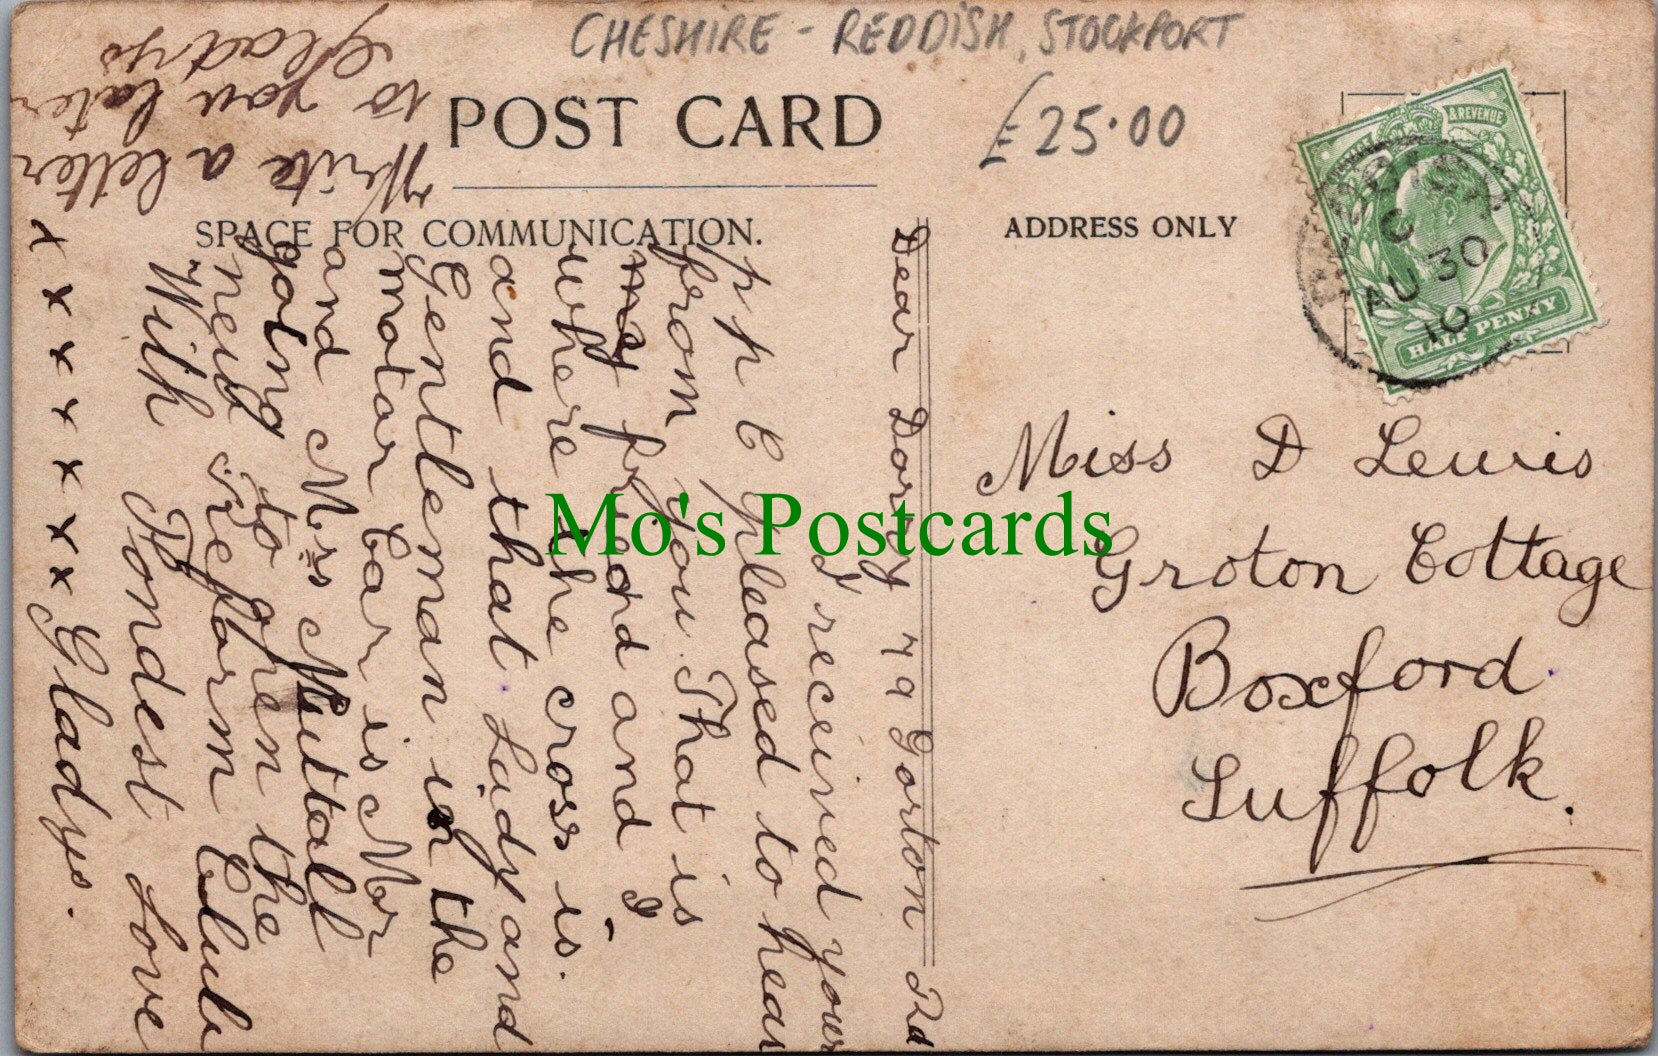 CHESHIRE - REDDISH, STOCKPORT
£25.00
POST CARD
SPACE FOR COMMUNICATION.
ADDRESS ONLY
& REVENUE
HALF PENNY
REDDISH
C
AU 30
10
Miss D Lewis
Groton Cottage
Boxford
Suffolk.
79 Gorton Rd
Dear Dorry
I received your
pp C pleased to hear
from you. That is
me friend and I
where the cross is.
and that Lady and
Gentleman in the
motor Car is Mr
and Mrs Nuttall
going to open the
new reform Club
With Fondest Love
x x x x x x x Gladys.
Write a letter
to you later
Gladys
Mo's Postcards